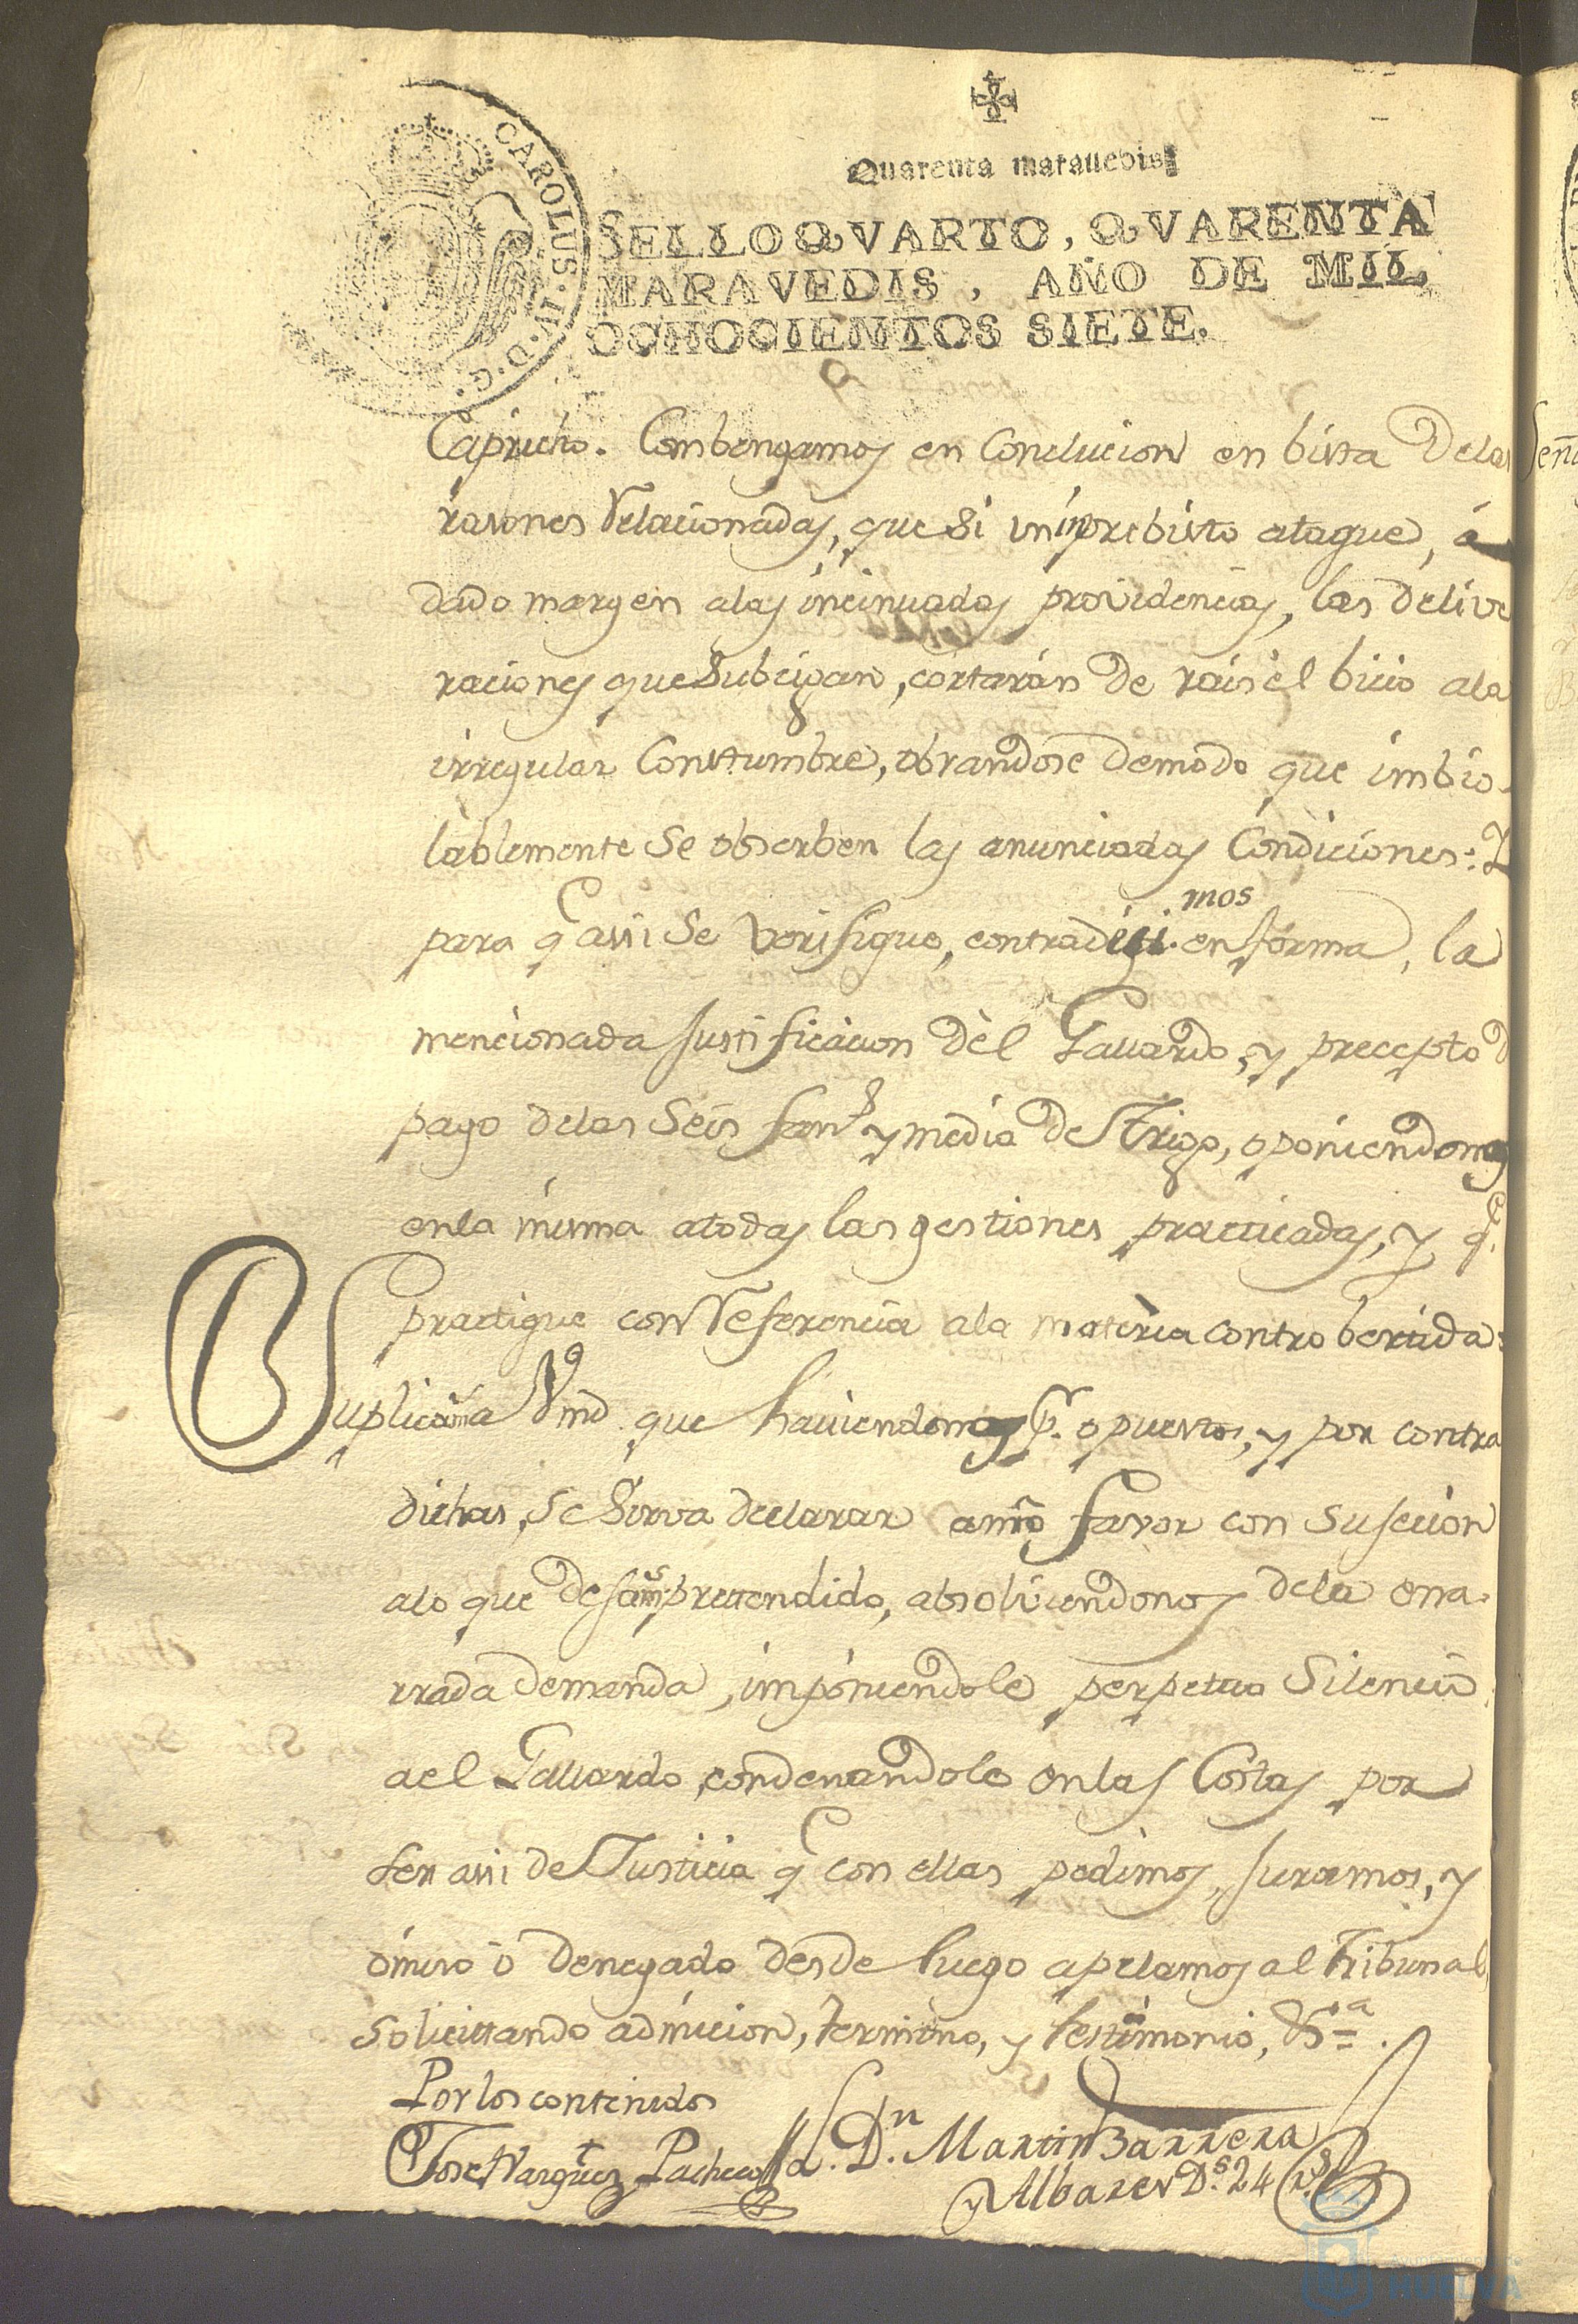 Quarenta marauedis
CAROLUS. IV. D. G.
SELLO QVARTO, QVARENTA
MARAVEDIS, AÑO DE MIL
OCHOCIENTOS SIETE.
Capricho. Combengamos en Conclucion en bista Delas
rasones relacionadas, que si un inprebisto ataque, á
dado margen alas incinuadas providencias, las delive
raciones que subcigan, cortarán de rais el bicio ala
irregular Constumbre, obrandose demodo que imbio-
lablemente se obserben las anunciadas Condiciones: Y
para q assi se verifique, contradecimos en forma, la
mencionada justificacion del Gallardo, y precepto d
pago delas seis fans y media de Trigo, oponiendonos
enla misma atodas las gestiones practicadas, y q.e
practique con referencia ala materia controbertida:
Suplicama Vmd que haviendonos p.r opuestos, y por contra
dichas, se sirva declarar anro favor con sujecion
alo que desamprettendido, absolviendonos dela ena-
rrada demanda, imponiendole perpetuo silencio
ael Gallardo, condenandole enlas Costas por
ser assi de Justicia q con ellas pedimos, juramos, y
omiso ó denegado desde luego apelamos al Tribunal
solicittando admicion, termino, y testimonio, &a=.
Por los contenidos
Jose Vazquez Pacheco
L.do D.n Martin Barrera
y Albares D.s 24 r.s
HUELVA